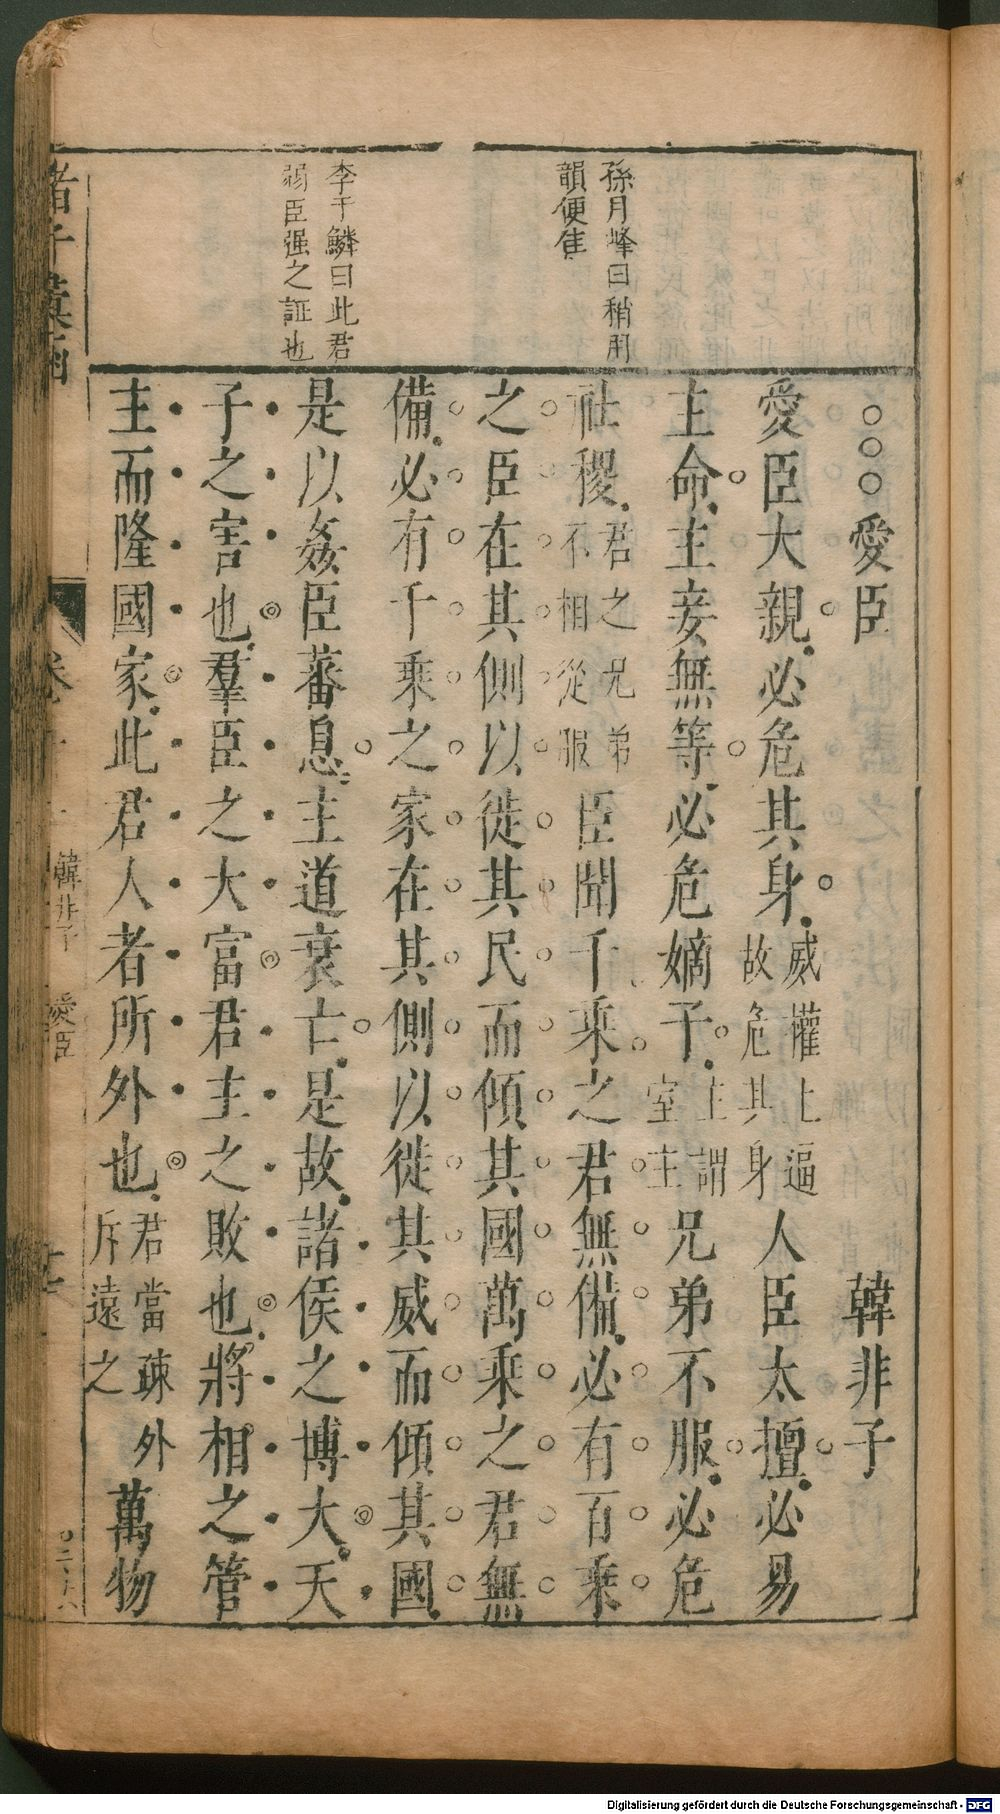 孫月峰曰稍用
韻便佳
李于鱗曰此君
弱臣强之証也
○○○愛臣　韓非子
愛臣大親必危其身威權上逼故危其身人臣太擅必易
主命主妾無等必危嫡子主謂室主兄弟不服必危
社稷君之兄弟不相從服臣聞千乘之君無備必有百乘
之臣在其側以徙其民而傾其國萬乘之君無
備必有千乘之家在其側以徙其威而傾其國
是以姦臣蕃息主道衰亡是故諸侯之博大天
子之害也羣臣之大富君主之敗也將相之管
主而隆國家此君人者所外也君當疎外斥遠之萬物
韓非子　愛臣
Digitalisierung gefördert durch die Deutsche Forschungsgemeinschaft - DFG